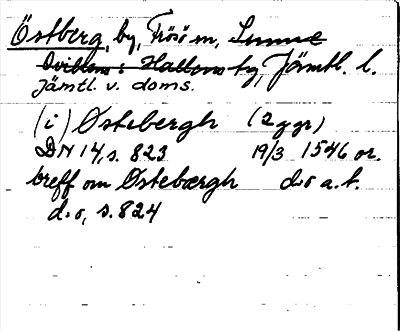 Östberg, by, Frösö sn, Sunne
Oviktens o. Hallens tg, Jämtl. l.
Jämtl. v. doms.
(i) Østebergh (2 ggr)
DN 14, s. 823 19/3 1546 or.
breff om Østebærgh d:o a.t.
d:o, s. 824